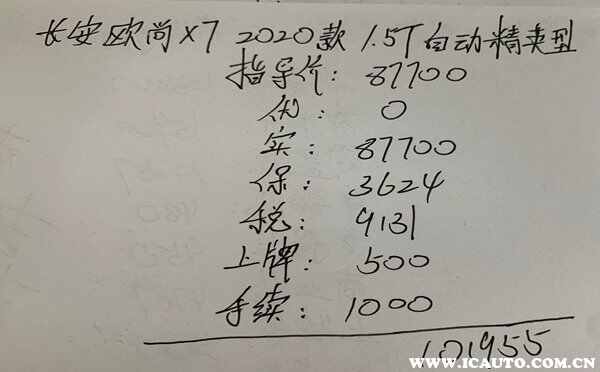 长安欧尚X7 2020款 1.5T自动精英型
指导价: 87700
优: 0
实: 87700
保: 3624
税: 9131
上牌: 500
手续: 1000
101955
WWW.ICAUTO.COM.CN